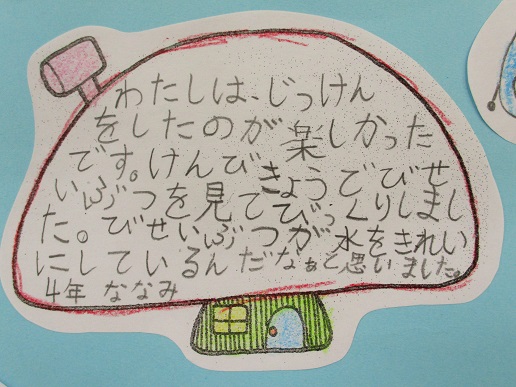 わたしは、じっけん
をしたのが楽しかった
です。けんびきょうでびせ
いぶつを見てびっくりしまし
た。びせいぶつが水をきれい
にしているんだなぁと思いました。
4年 ななみ